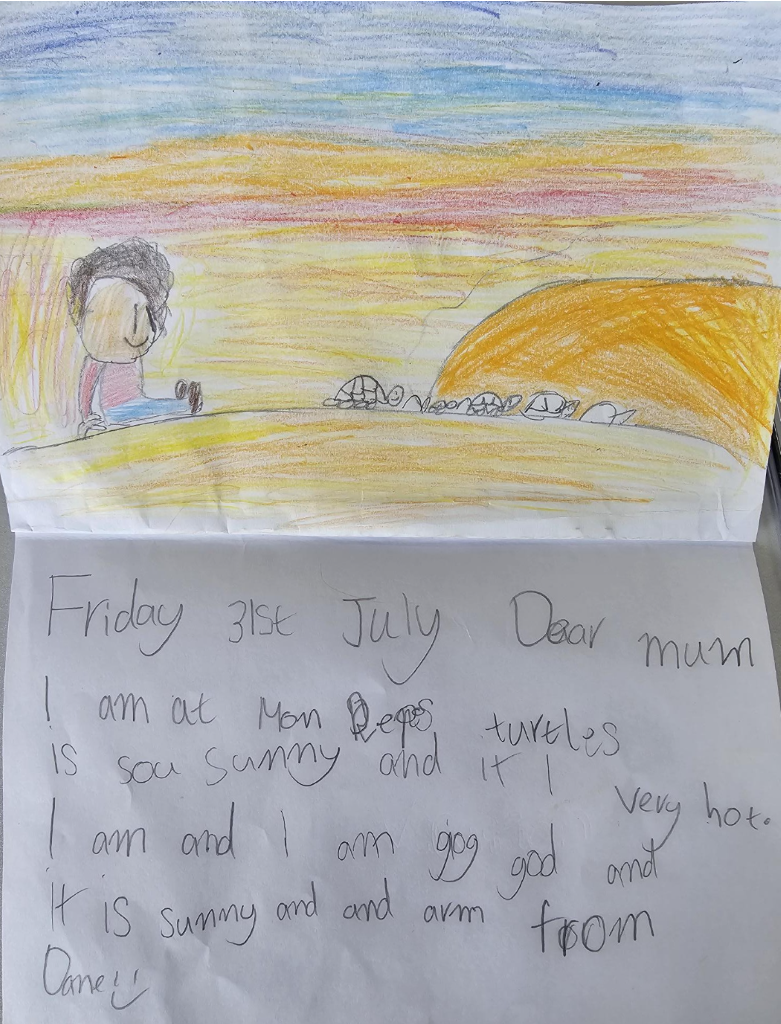 Friday 31st July Dear mum
I am at Mon Reps turtles
is sou sunny and it I
very hot.
I am and I am gog god and
it is sunny and and arm from
Dane